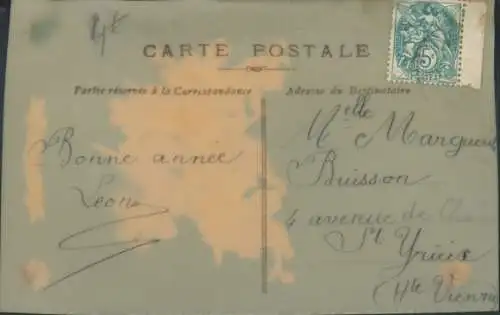 CARTE POSTALE
Partie réservée à la Correspondance
Adresse du Destinataire
Bonne année
Léon
Melle Marguerit
Buisson
4 avenue de
St Yrieix
(Hte Vienne)
5